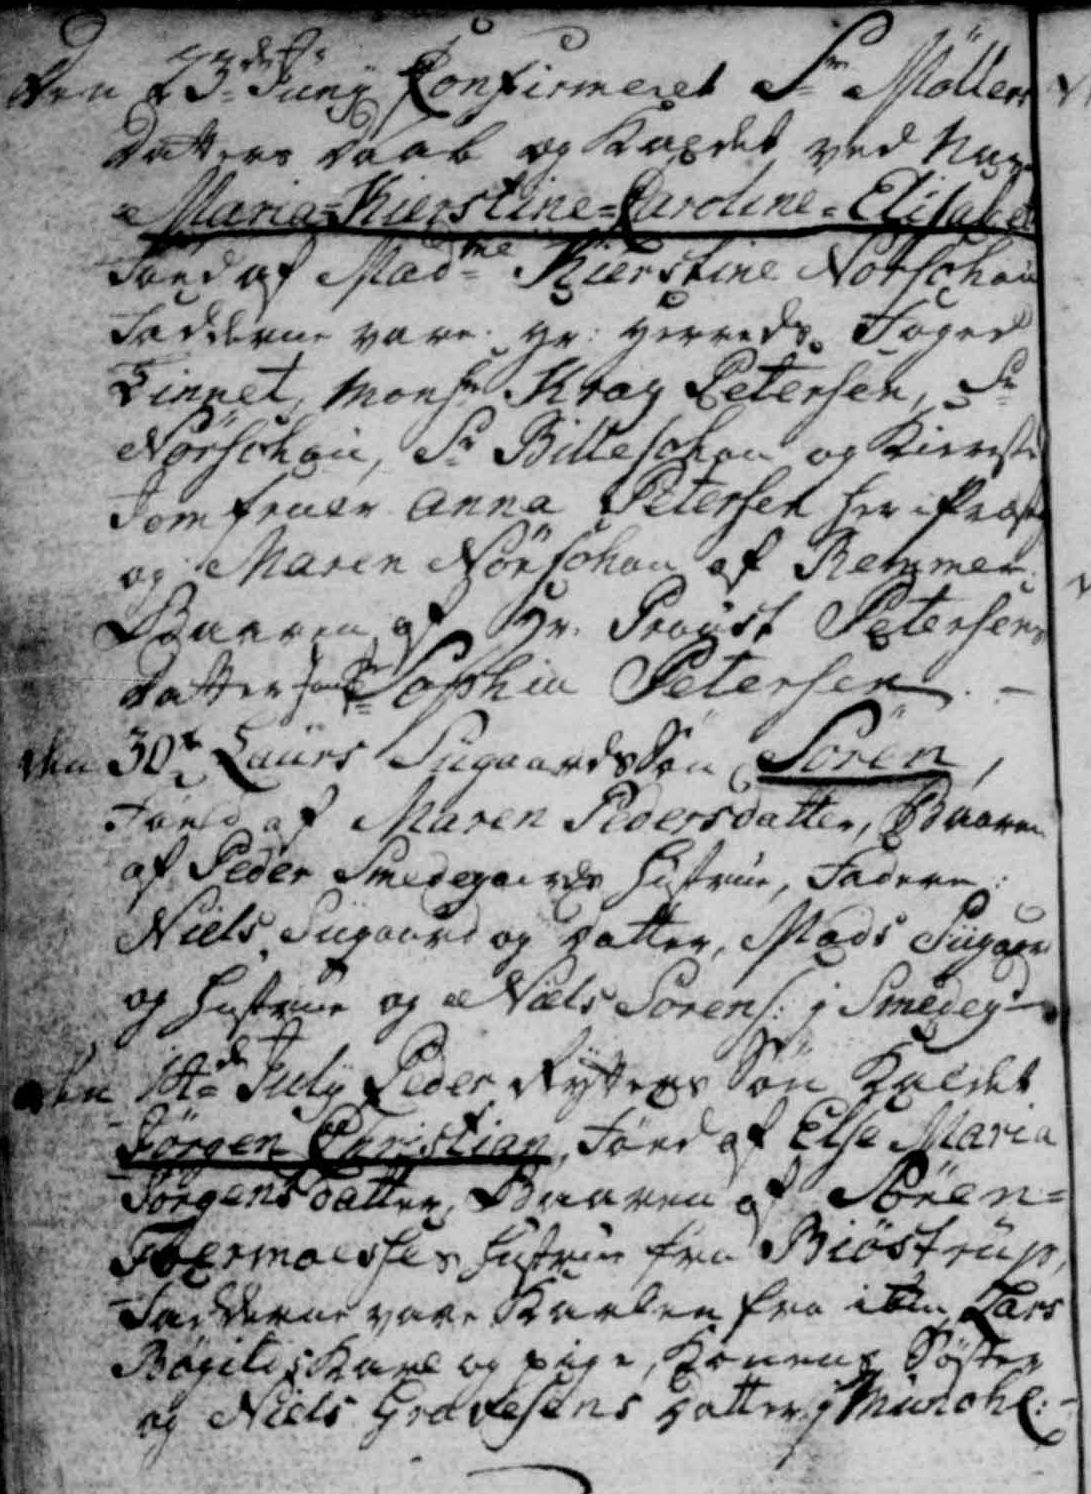 den 23de Juny Confirmeret Sr Möllers
datters daab og Kaldet ved Nav
Maria=Kierstine=Caroline=Elisabet
Föed af Madme Kierstine Nörschou
Fadderne vare. Hr: Herreds Foged
Linnet, Monsr Krag Petersen, Sr
Nörschou, Sr Billeschou og
Jomfruer Anna Petersen her i
og Maren Nörschou af Remmer
Baaren af Hr. Provst Petersens
datter Sophia Petersen. -
den 30te Laurs Siigaards Sön Sören,
Föed af Maren Pedersdatter, Baaren
af Peder Smedegaards Hustrue, Fadere:
Niels Siigaard og datter, Mads Siigaar
og Hustrue og Niels Sörens: i Smedeg
den Julÿ Peder Rytters Sön Kaldet
Jörgen Christian, Föed af Else Maria
Jörgens datter, Baaren af Sören=
Hustrue fra Biöstrup,
Fadderne vare Karlen fra Lars
Karl og pige, Konens Söster
og Niels Gravesens datter i Munche: